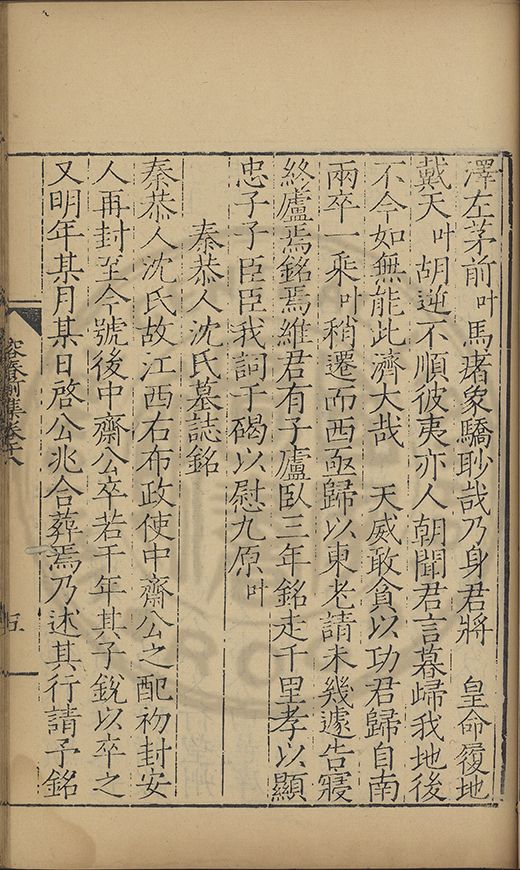 澤左茅前叶馬瘏象驕眇哉乃身君將　皇命履地
戴天叶胡逆不順彼夷亦人朝聞君言暮歸我地後
不今如無能此濟大哉　天威敢貪以功君歸自南
兩卒一乘叶稍遷而西亟歸以東老請未幾遽告寢
終廬焉銘焉維君有子廬臥三年銘走千里孝以顯
忠子子臣臣我詞于碣以慰九原叶
秦恭人沈氏墓誌銘
秦恭人沈氏故江西右布政使中齋公之配初封安
人再封至今號後中齋公卒若干年其子銳以卒之
又明年某月某日啓公兆合葬焉乃述其行請予銘
容春前集卷十八
五